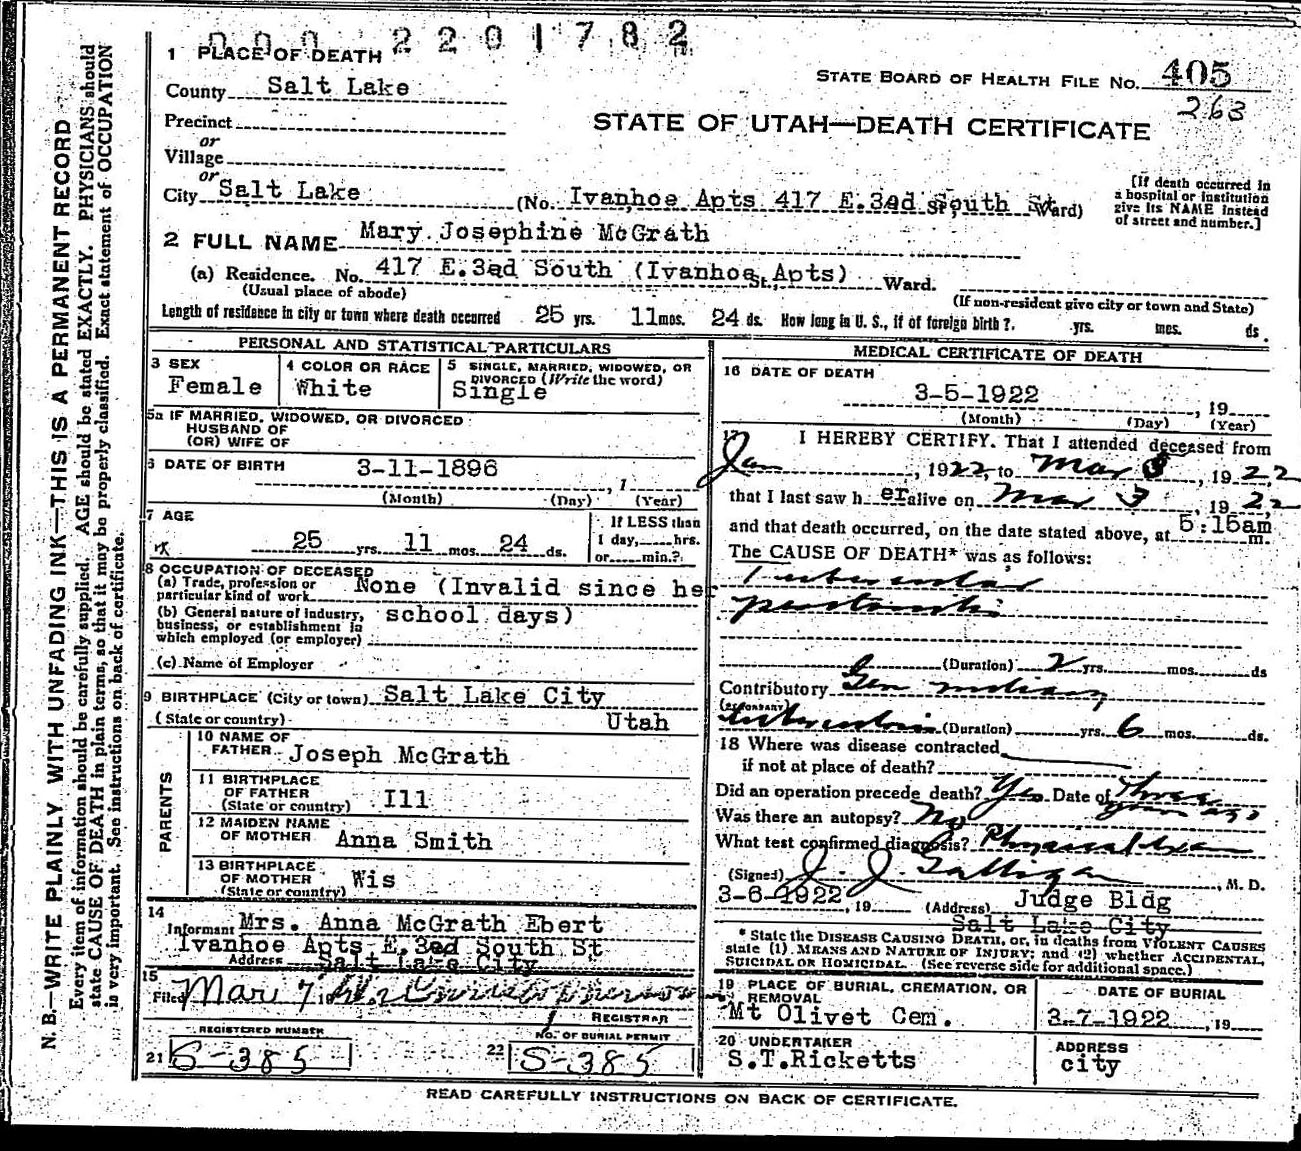 0 0 0 2 2 0 1 7 8 2
1 PLACE OF DEATH
STATE BOARD OF HEALTH FILE NO. 405
263
County Salt Lake
Precinct
STATE OF UTAH—DEATH CERTIFICATE
or
Village
or
City Salt Lake (No. Ivanhoe Apts 417 E.3ed South St St., Ward)
[If death occurred in a hospital or institution give its NAME instead of street and number.]
2 FULL NAME Mary Josephine McGrath
(a) Residence. No. 417 E.3ed South (Ivanhoe Apts) St., Ward.
(Usual place of abode) (If non-resident give city or town and State)
Length of residence in city or town where death occurred 25 yrs. 11 mos. 24 ds. How long in U. S., if of foreign birth? yrs. mos. ds.
PERSONAL AND STATISTICAL PARTICULARS
3 SEX Female
4 COLOR OR RACE White
5 SINGLE, MARRIED, WIDOWED, OR DIVORCED (Write the word) Single
5a IF MARRIED, WIDOWED, OR DIVORCED
HUSBAND OF
(OR) WIFE OF
6 DATE OF BIRTH 3-11-1896 , 1
(Month) (Day) (Year)
7 AGE
25 yrs. 11 mos. 24 ds.
If LESS than 1 day, hrs. or min.?
8 OCCUPATION OF DECEASED
(a) Trade, profession or particular kind of work None (Invalid since her
(b) General nature of industry, business, or establishment in which employed (or employer) school days)
(c) Name of Employer
9 BIRTHPLACE (City or town) Salt Lake City
(State or country) Utah
PARENTS
10 NAME OF FATHER Joseph McGrath
11 BIRTHPLACE OF FATHER (State or country) Ill
12 MAIDEN NAME OF MOTHER Anna Smith
13 BIRTHPLACE OF MOTHER (State or country) Wis
14
Informant Mrs. Anna McGrath Ebert
Ivanhoe Apts E.3ed South St
Address Salt Lake City
15
Filed Mar 7, 19
REGISTRAR
REGISTERED NUMBER
21 S-385
NO. OF BURIAL PERMIT
22 S-385
MEDICAL CERTIFICATE OF DEATH
16 DATE OF DEATH
3-5-1922 , 19
(Month) (Day) (Year)
17 I HEREBY CERTIFY. That I attended deceased from
Jan , 1922, to Mar 3 , 1922
that I last saw h er alive on Mar 3 , 1922,
and that death occurred, on the date stated above, at 5:15am m.
The CAUSE OF DEATH* was as follows:
Tubercular
peritonitis
(Duration) 2 yrs. mos. ds
Contributory Gen miliary
(SECONDARY)
tuberculosis (Duration) yrs. 6 mos. ds.
18 Where was disease contracted
if not at place of death?
Did an operation precede death? Yes Date of Three years ago
Was there an autopsy? No
What test confirmed diagnosis? Physical Exam
(Signed) J. J. Galligan , M. D.
3-6-1922 , 19 (Address) Judge Bldg
Salt Lake City
* State the DISEASE CAUSING DEATH, or, in deaths from VIOLENT CAUSES
state (1) MEANS AND NATURE OF INJURY; and (2) whether ACCIDENTAL,
SUICIDAL OR HOMICIDAL. (See reverse side for additional space.)
19 PLACE OF BURIAL, CREMATION, OR REMOVAL
Mt Olivet Cem.
DATE OF BURIAL
3-7-1922 , 19
20 UNDERTAKER
S.T.Ricketts
ADDRESS
city
READ CAREFULLY INSTRUCTIONS ON BACK OF CERTIFICATE.
N. B.—WRITE PLAINLY WITH UNFADING INK—THIS IS A PERMANENT RECORD
Every item of information should be carefully supplied. AGE should be stated EXACTLY. PHYSICIANS should
state CAUSE OF DEATH in plain terms, so that it may be properly classified. Exact statement of OCCUPATION
is very important. See instructions on back of certificate.